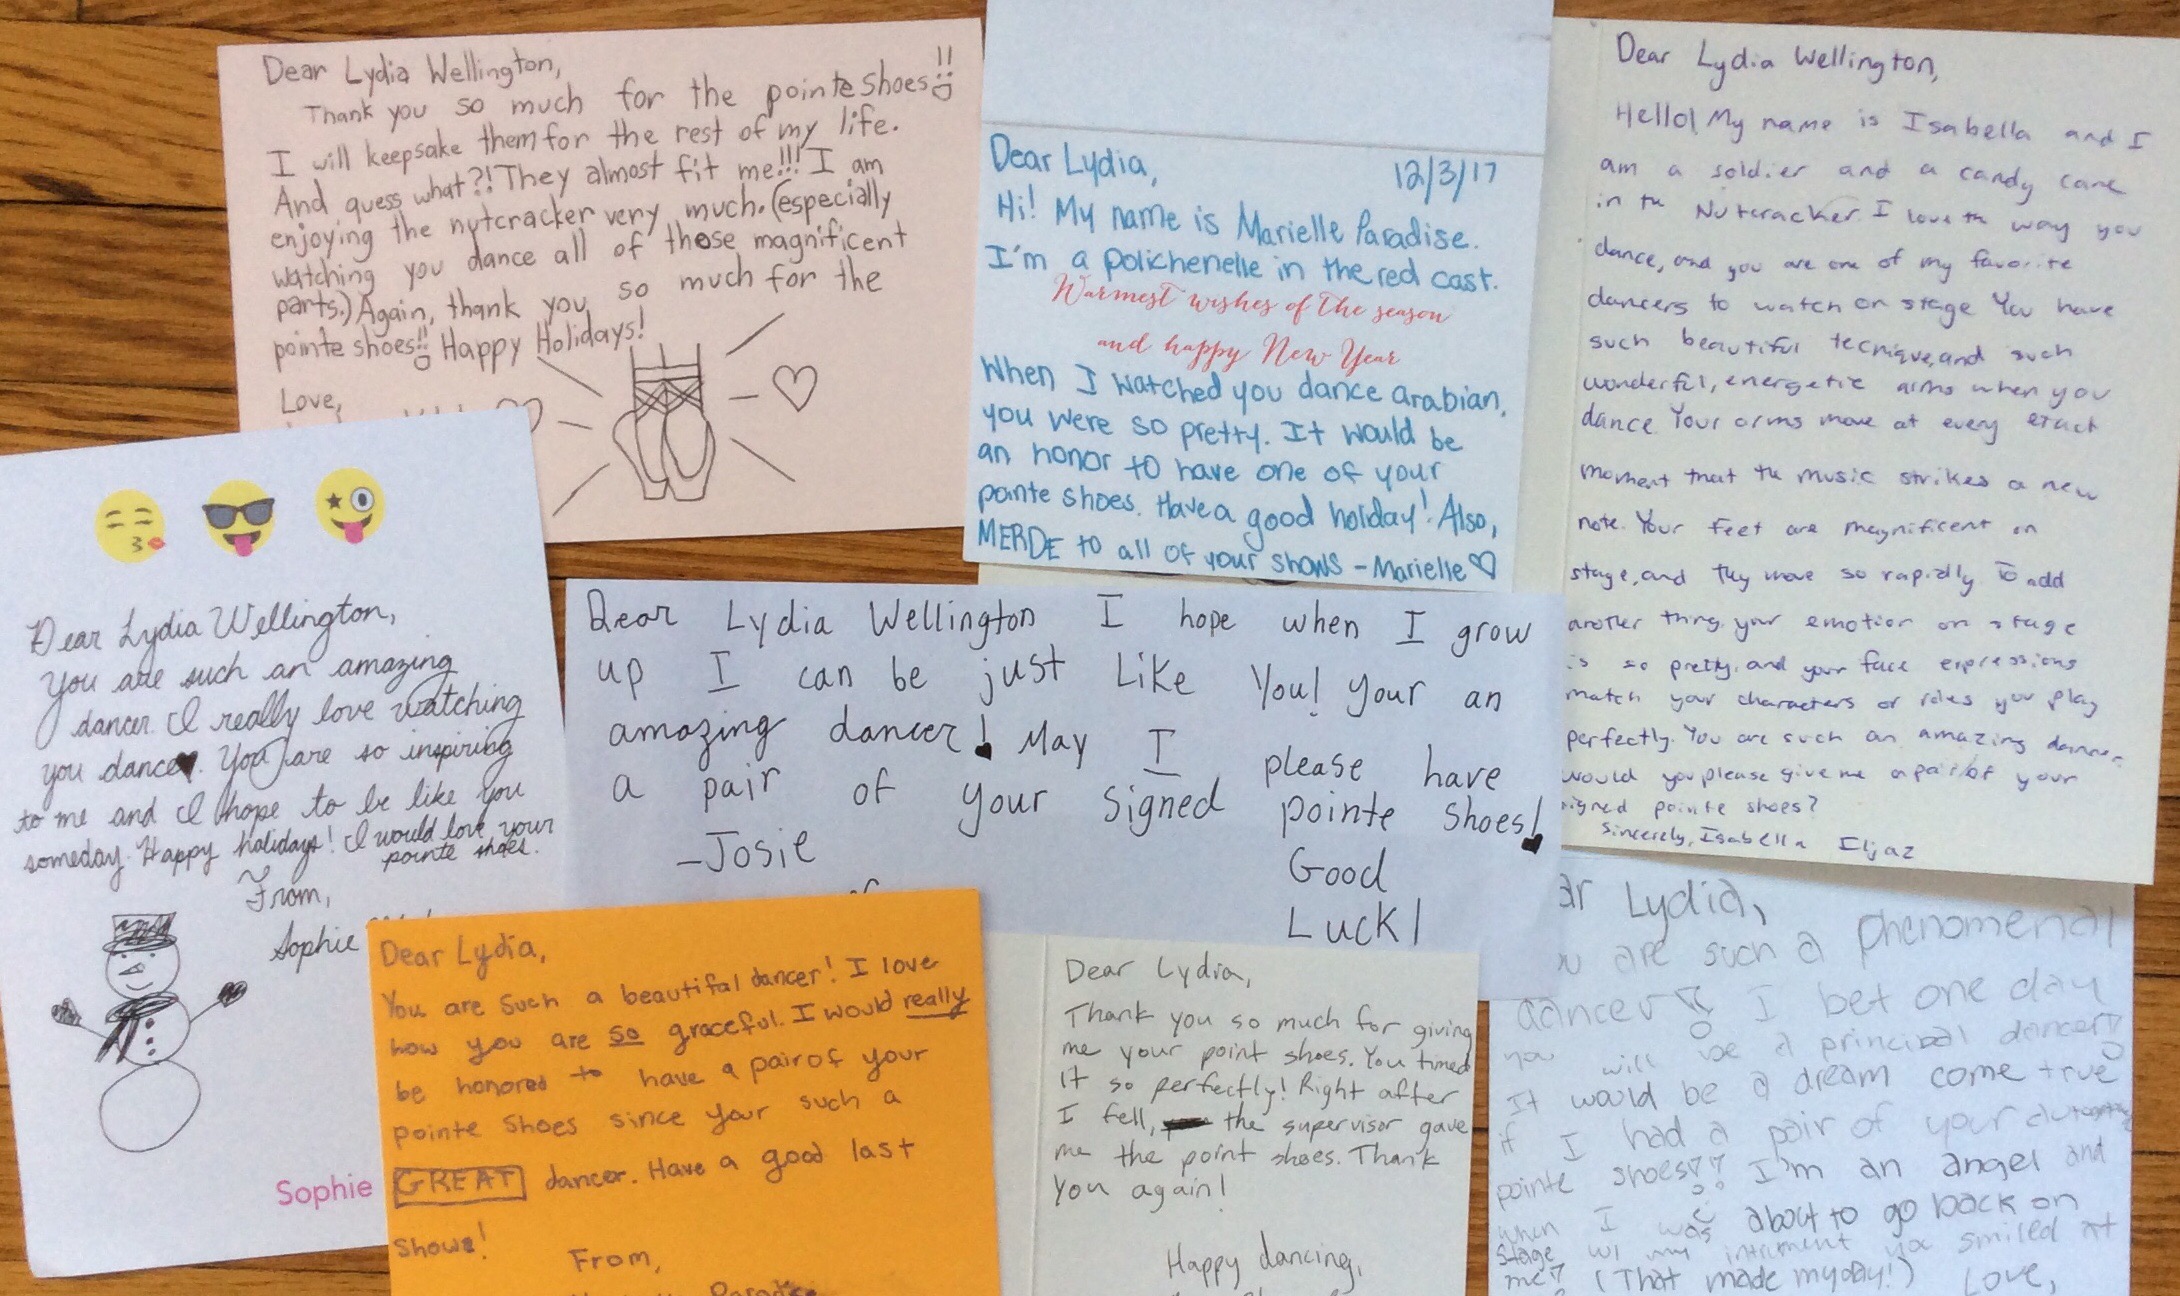 Dear Lydia Wellington,
Thank you so much for the pointe shoes!!
I will keepsake them for the rest of my life.
And guess what?! They almost fit me!!! I am
enjoying the nutcracker very much. (especially
watching you dance all of those magnificent
parts.) Again, thank you so much for the
pointe shoes!! Happy Holidays!
Love,
Dear Lydia,
12/3/17
Hi! My name is Marielle Paradise.
I'm a polichenelle in the red cast.
Warmest wishes of the season
and happy New Year
When I watched you dance arabian,
you were so pretty. It would be
an honor to have one of your
pointe shoes. Have a good holiday! Also,
MERDE to all of your shows - Marielle ♡
Dear Lydia Wellington,
Hello! My name is Isabella and I
am a soldier and a candy cane
in the Nutcracker. I love the way you
dance, and you are one of my favorite
dancers to watch on stage You have
such beautiful tecnique, and such
wonderful, energetic arms when you
dance. Your arms move at every exact
moment that the music strikes a new
note. Your feet are magnificent on
stage, and they move so rapidly To add
another thing, your emotion on stage
is so pretty, and your face expressions
match your characters or roles you play
perfectly. You are such an amazing dancer.
would you please give me a pair of your
signed pointe shoes?
Sincerely, Isabella Iljaz
Dear Lydia Wellington,
You are such an amazing
dancer. I really love watching
you dance♥. You are so inspiring
to me and I hope to be like you
someday. Happy holidays! I would love your
pointe shoes.
From,
Sophie
Sophie
Dear Lydia Wellington I hope when I grow
up I can be just Like You! Your an
amazing dancer! May I please have
a pair of your signed pointe shoes!
-Josie
Good
Luck!
Dear Lydia,
You are such a beautiful dancer! I love
how you are so graceful. I would really
be honored to have a pair of your
pointe shoes since your such a
GREAT dancer. Have a good last
Show!
From,
Paradise
Dear Lydia,
Thank you so much for giving
me your point shoes. You timed
It so perfectly! Right after
I fell, the supervisor gave
me the point shoes. Thank
You again!
Happy dancing,
ar Lydia,
ou are such a phenomenal
dancer! I bet one day
you will be a principal dancer!
It would be a dream come true
if I had a pair of your
pointe shoes!! I'm an angel and
when I was about to go back on
stage w/ my intrument you smiled at
me! (That made my day!) Love,